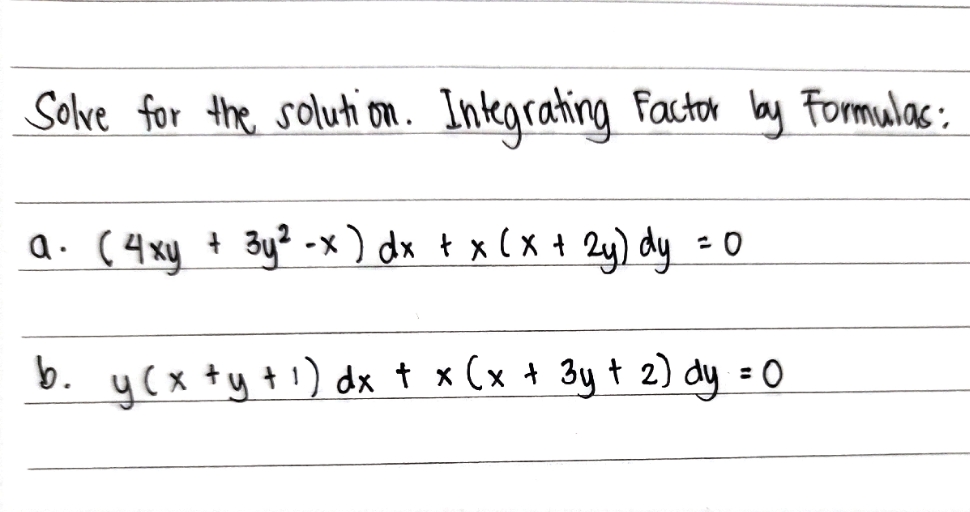 Solve for the solution. Integrating Factor by Formulas:
a. (4xy + 3y² - x) dx + x (x + 2y) dy = 0
b. y(x + y + 1) dx + x (x + 3y + 2) dy = 0